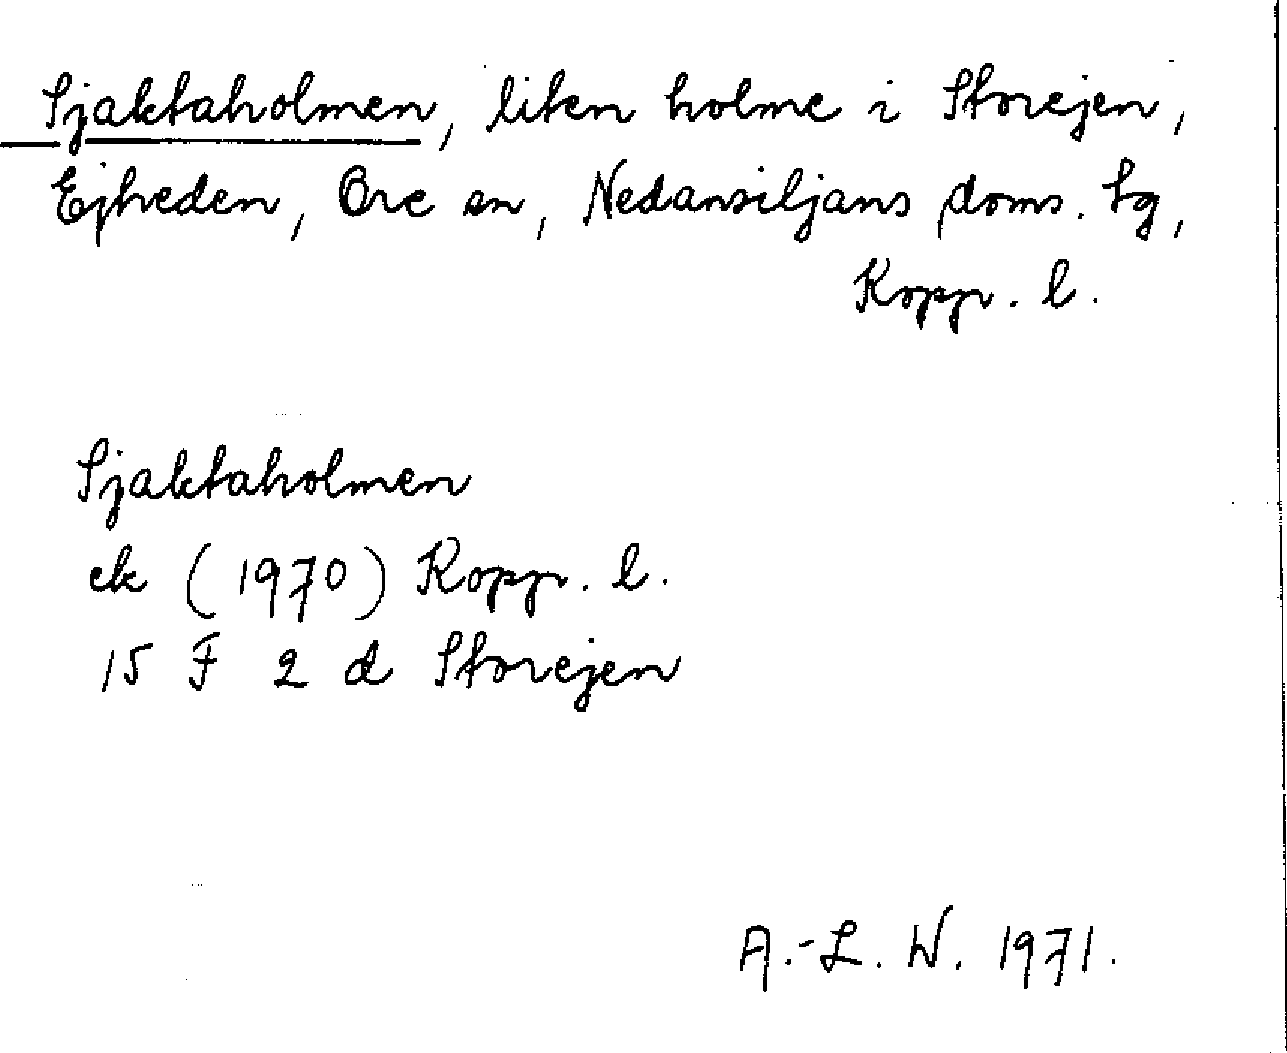 Sjaktaholmen, liten holme i Storejen,
Ejheden, Ore sn, Nedansiljans doms. tg,
Kopp. l.
Sjaktaholmen
ek (1970) Kopp. l.
15 F 2 d Storejen
A.-L. W. 1971.